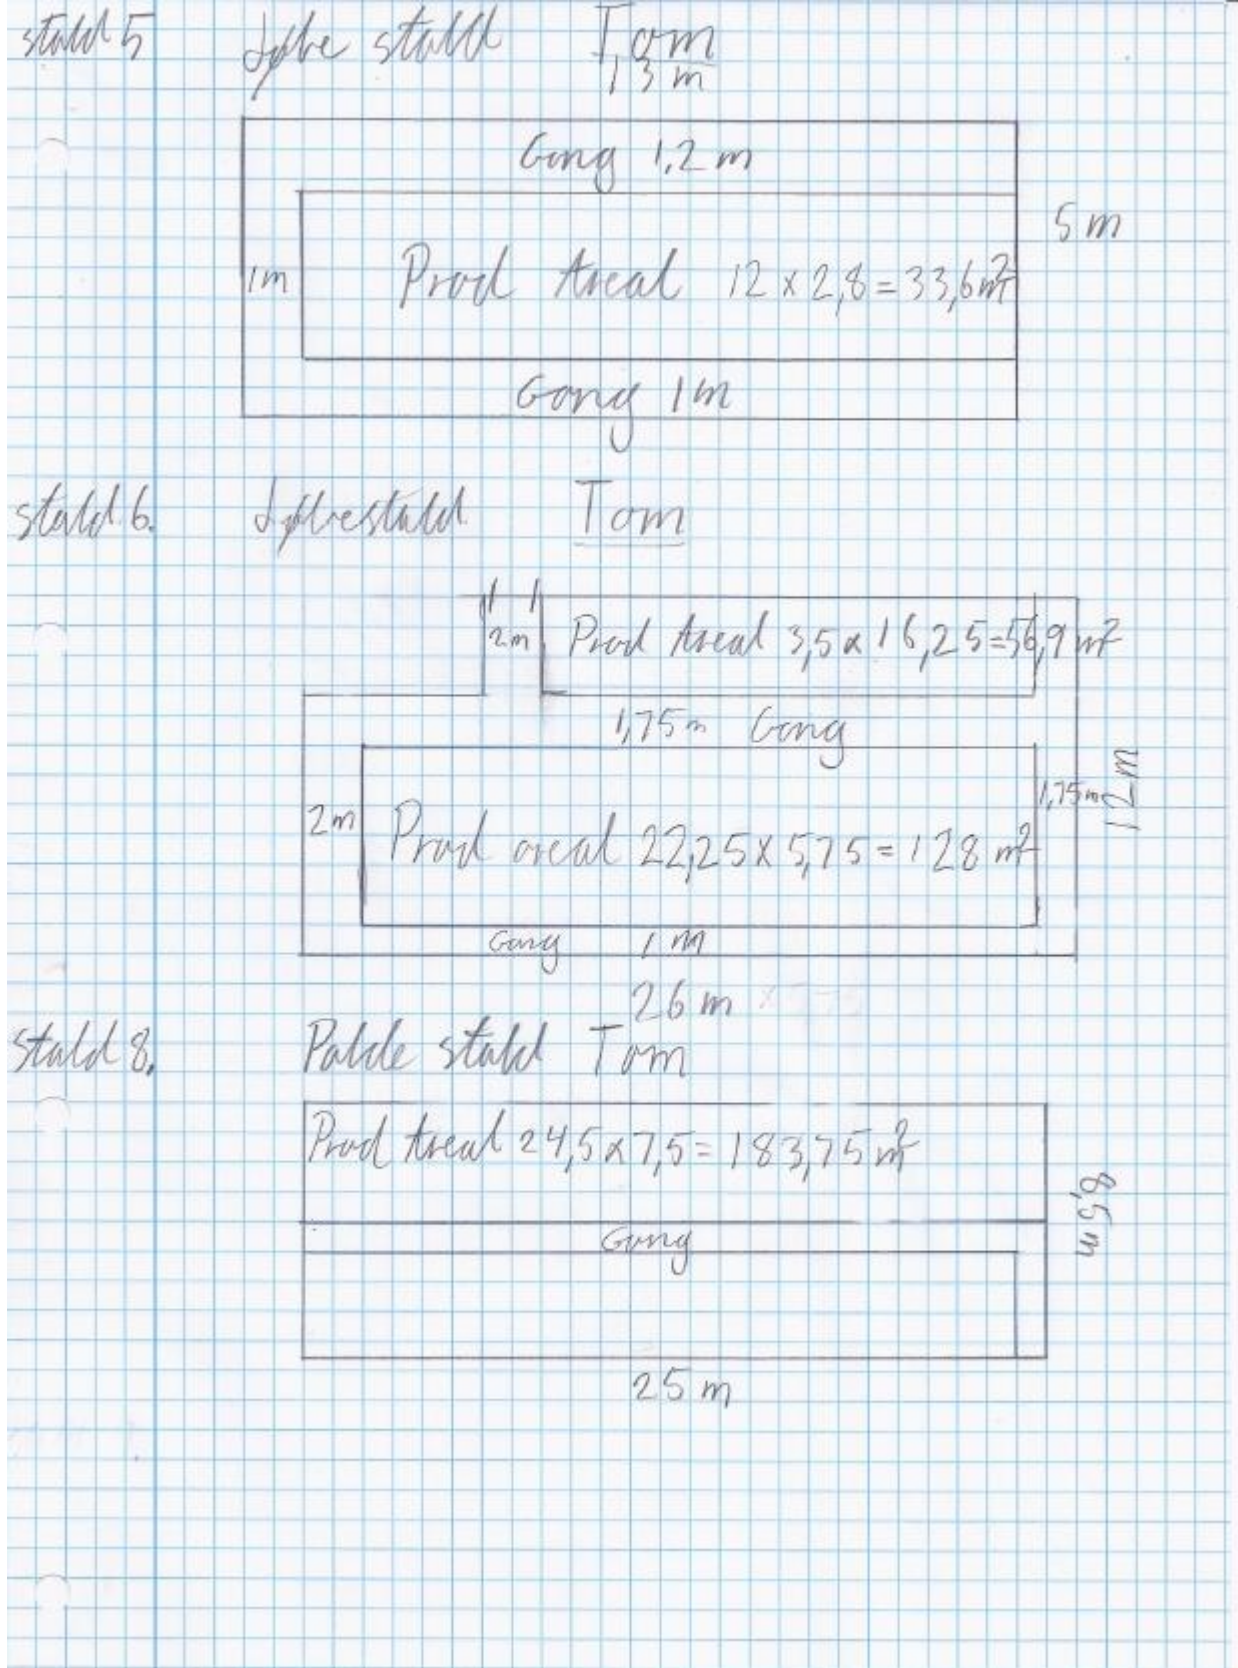 stald 5 Løbe stald Tom
13 m
Gang 1,2 m
5 m
1m Prod Areal 12 x 2,8 = 33,6 m²
Gang 1 m
stald 6. Løbestald Tom
2m Prod Areal 3,5 x 16,25 = 56,9 m²
1,75 m Gang
12 m
1,75 m
2m Prod areal 22,25 x 5,75 = 128 m²
Gang 1 m
26 m
Stald 8. Polde stald Tom
Prod Areal 24,5 x 7,5 = 183,75 m²
8,5 m
Gang
25 m